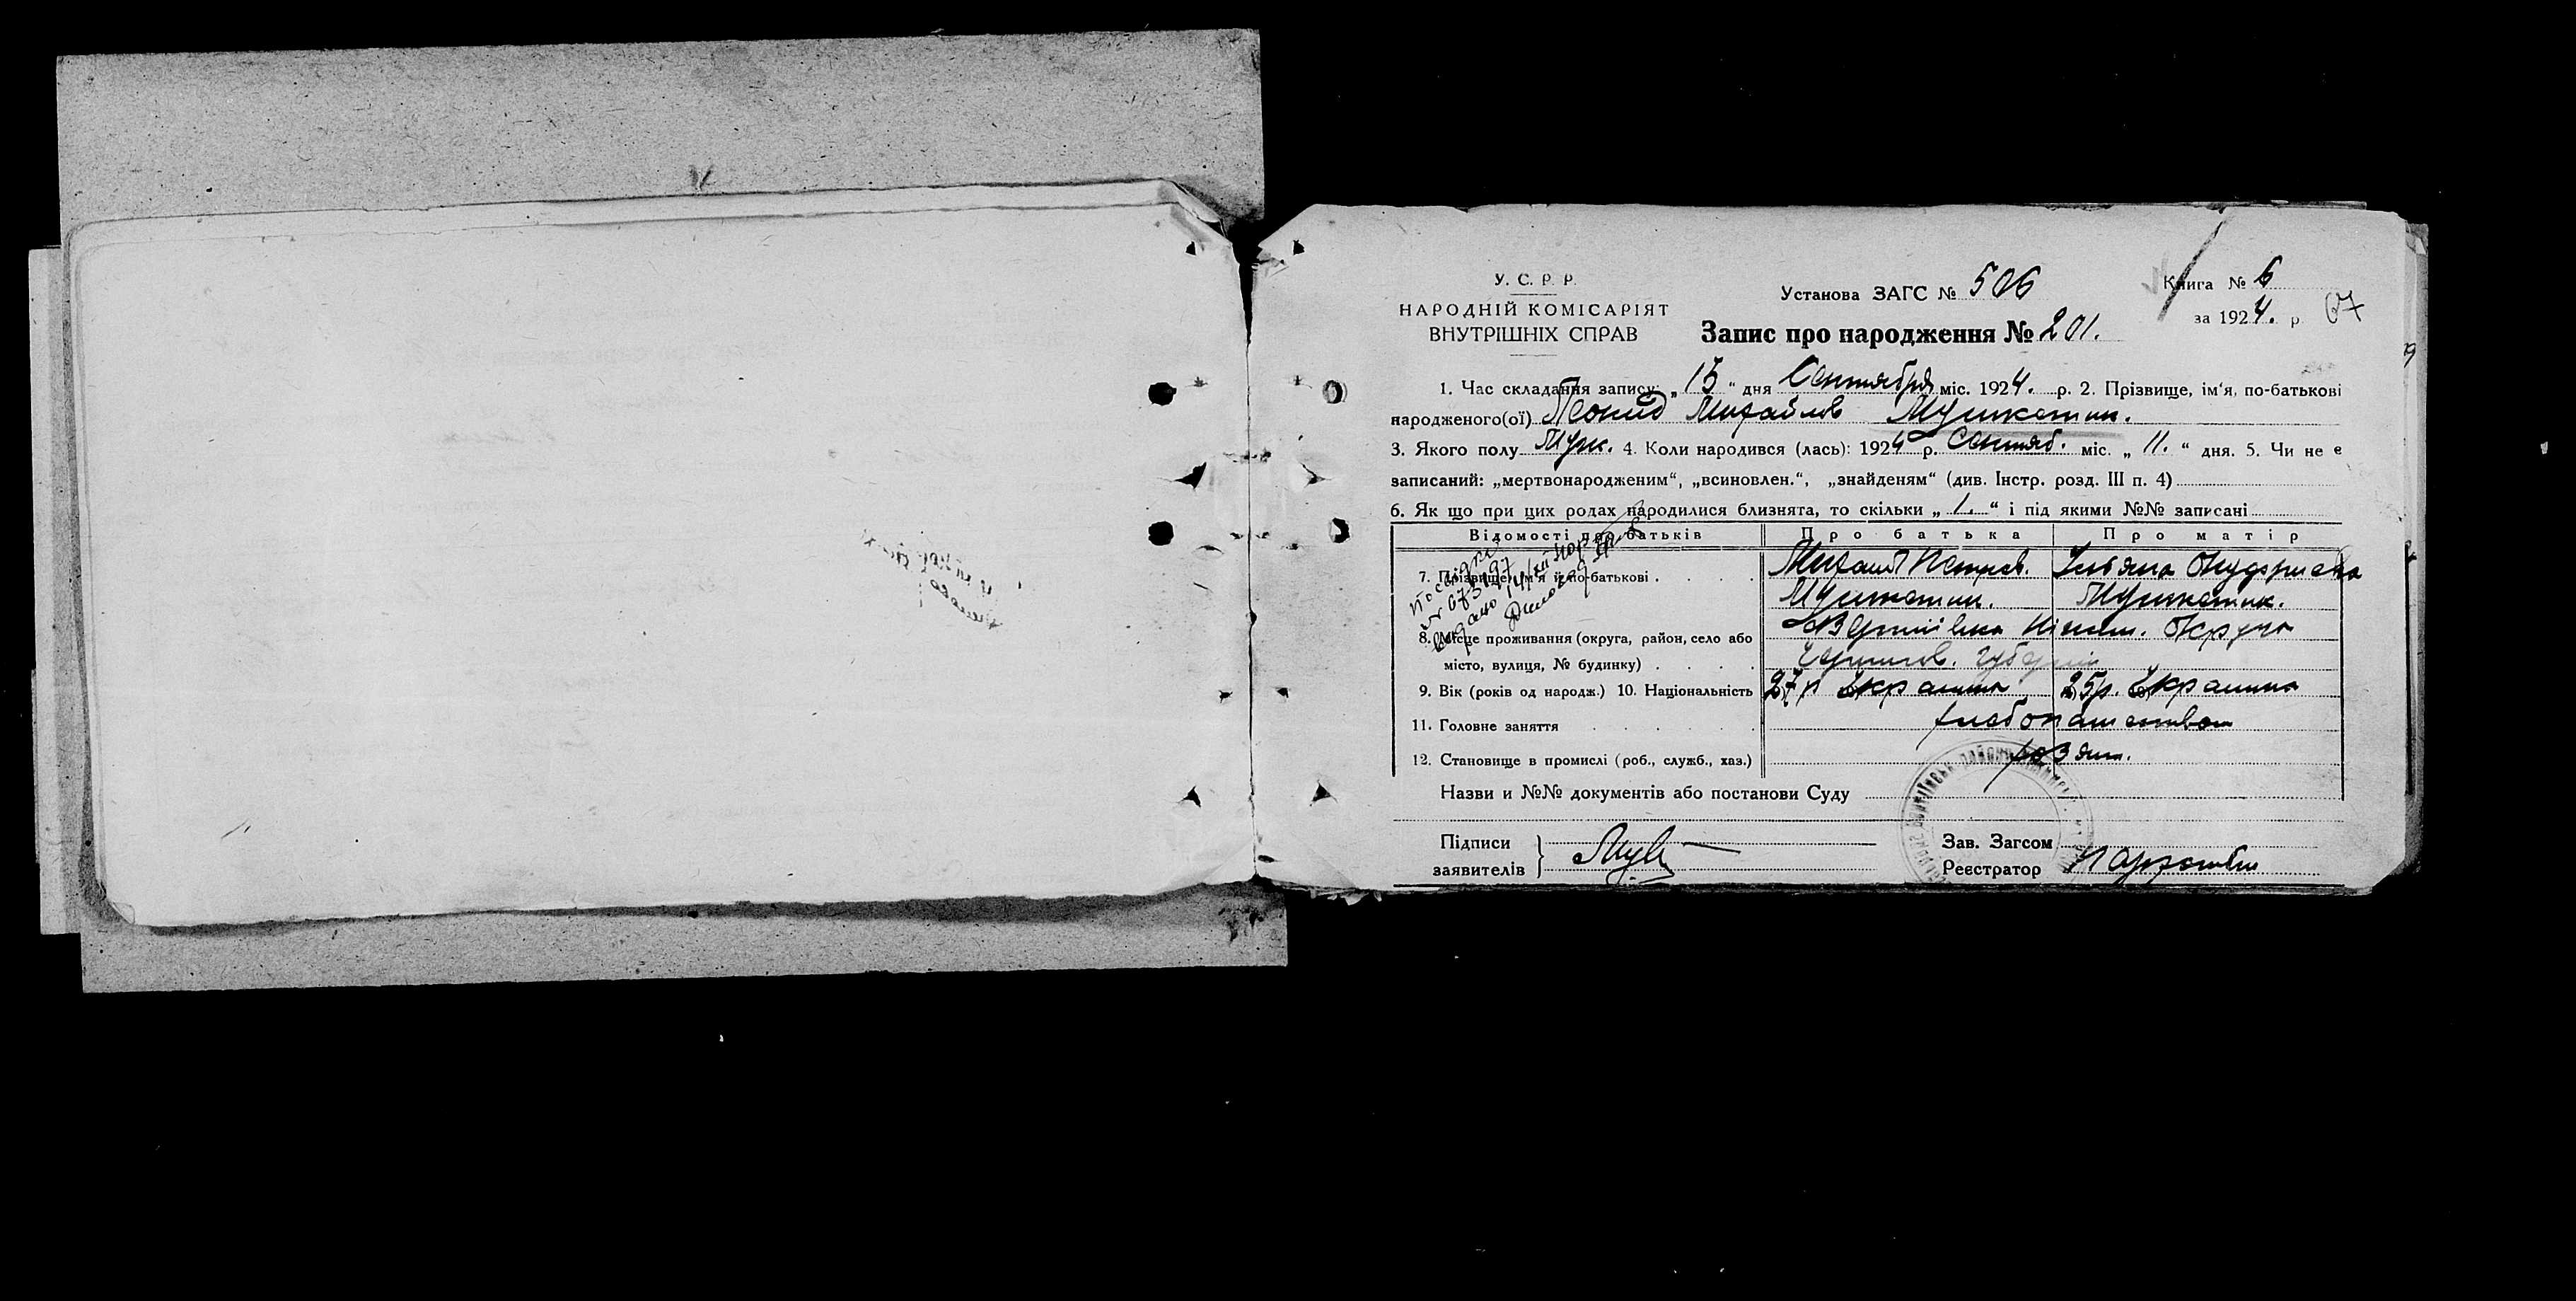 У. С. Р. Р.
НАРОДНІЙ КОМІСАРІЯТ
ВНУТРІШНІХ СПРАВ
Установа ЗАГС № 506
Книга № 6
за 1924. р.
67
Запис про народження № 201.
1. Час складання запису: „15“ дня Сентября міс. 1924. р. 2. Прізвище, ім'я, по-батькові
народженого(ої) Леонид Михайлов Мушкетик.
3. Якого полу Муж. 4. Коли народився (лась): 1924 р. Сентяб. міс. „11.“ дня. 5. Чи не є
записаний: „мертвонародженим“, „всиновлен.“, „знайденям“ (див. Інстр. розд. III п. 4)
6. Як що при цих родах народилися близнята, то скільки „1.“ і під якими №№ записані
Відомості про батьків Про батька Про матір
7. Прізвище, ім'я й по-батькові Михаил Петров. Ульяна Онуфриевна
Мушкетик. Мушкетик.
8. Місце проживання (округа, район, село або Вертиївка Ніжин. Округа
місто, вулиця, № будинку) Чернигов. Губернии
9. Вік (років од народж.) 10. Національність 27 р Украинец 25 р. Украинка
11. Головне заняття хлебопашество
12. Становище в промислі (роб., служб., хаз.) хозяин.
Назви и №№ документів або постанови Суду
Підписи
заявителів
Зав. Загсом
Реєстратор